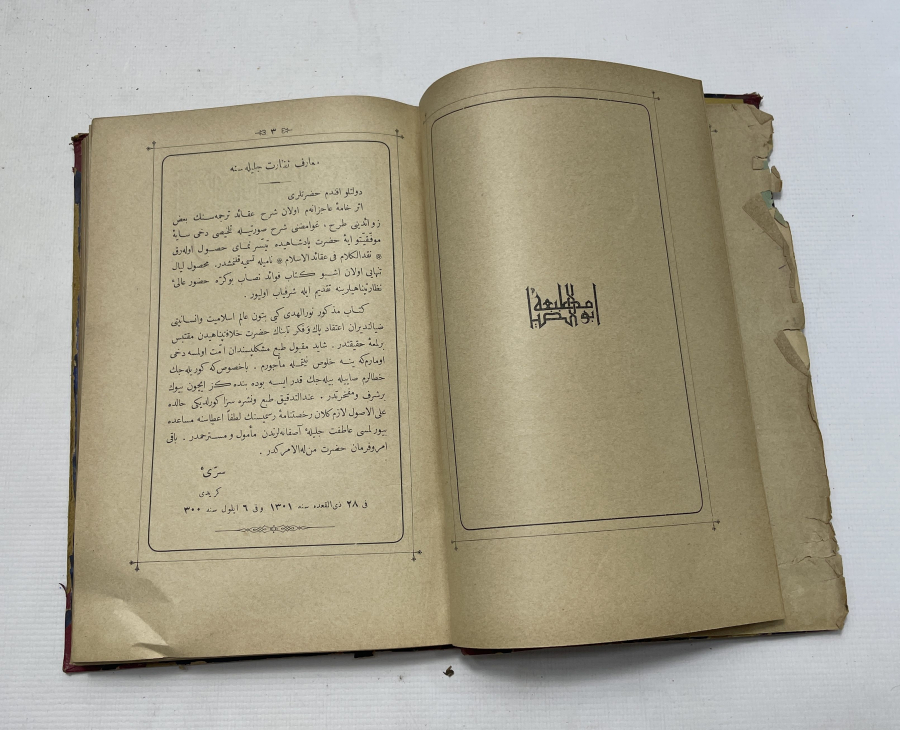 مطبعهٔ
ابو الضیا
٣
معارف نظارت جلیله‌سنه
دولتلو افندم حضرتلری
اثر خامهٔ عاجزانه‌م اولان شرح عقائد ترجمه‌سنك بعض
زوائدینی طرح ، غوامضنی شرح صورتیله تلخیصی دخی سایهٔ
موفقیتوایهٔ حضرت پادشاهیده تیسر نمای حصول اوله‌رق
« نقدالکلام فی عقائد الاسلام » نامیله تسمیه قلنمشدر. محصول لیال
تنهایی اولان اشبو کتاب فوائد نصاب بوکره حضور عالیٔ
نظارتپناهیلرینه تقدیم ایله شرفیاب اولیور .
کتاب مذکور نورالهدی کبی بتون عالم اسلامیت وانسانیتی
ضیالندیران اعتقاد پاك وفکر تابناك حضرت خلافتپناهیدن مقتبس
برلمعهٔ حقیقتدر . شاید مقبول طبع مشکلپسندان امت اولمسه دخی
اومارم‌که ینه خلوص نیتمله مأجورم . باخصوص‌که کوریله‌جك
خطالرم صاییله بیله‌جك قدر ایسه بوده بنده‌کز ایچون بیوك
برشرف ومفخرتدر . عندالتدقیق طبع ونشره سزا کورلدیکی حالده
علی الاصول لازم‌کلان رخصتنامهٔ رسمیسنك لطفاً اعطاسنه مساعده
بیورلمسی عاطفت جلیلهٔ آصفانه‌لرندن مأمول ومسترحمدر . باقی
امر وفرمان حضرت من له الامرکدر .
سرّیٔ
کریدی
فی ٢٨ ذی‌القعده سنه ١٣٠١ وفی ٦ ایلول سنه ٣٠٠